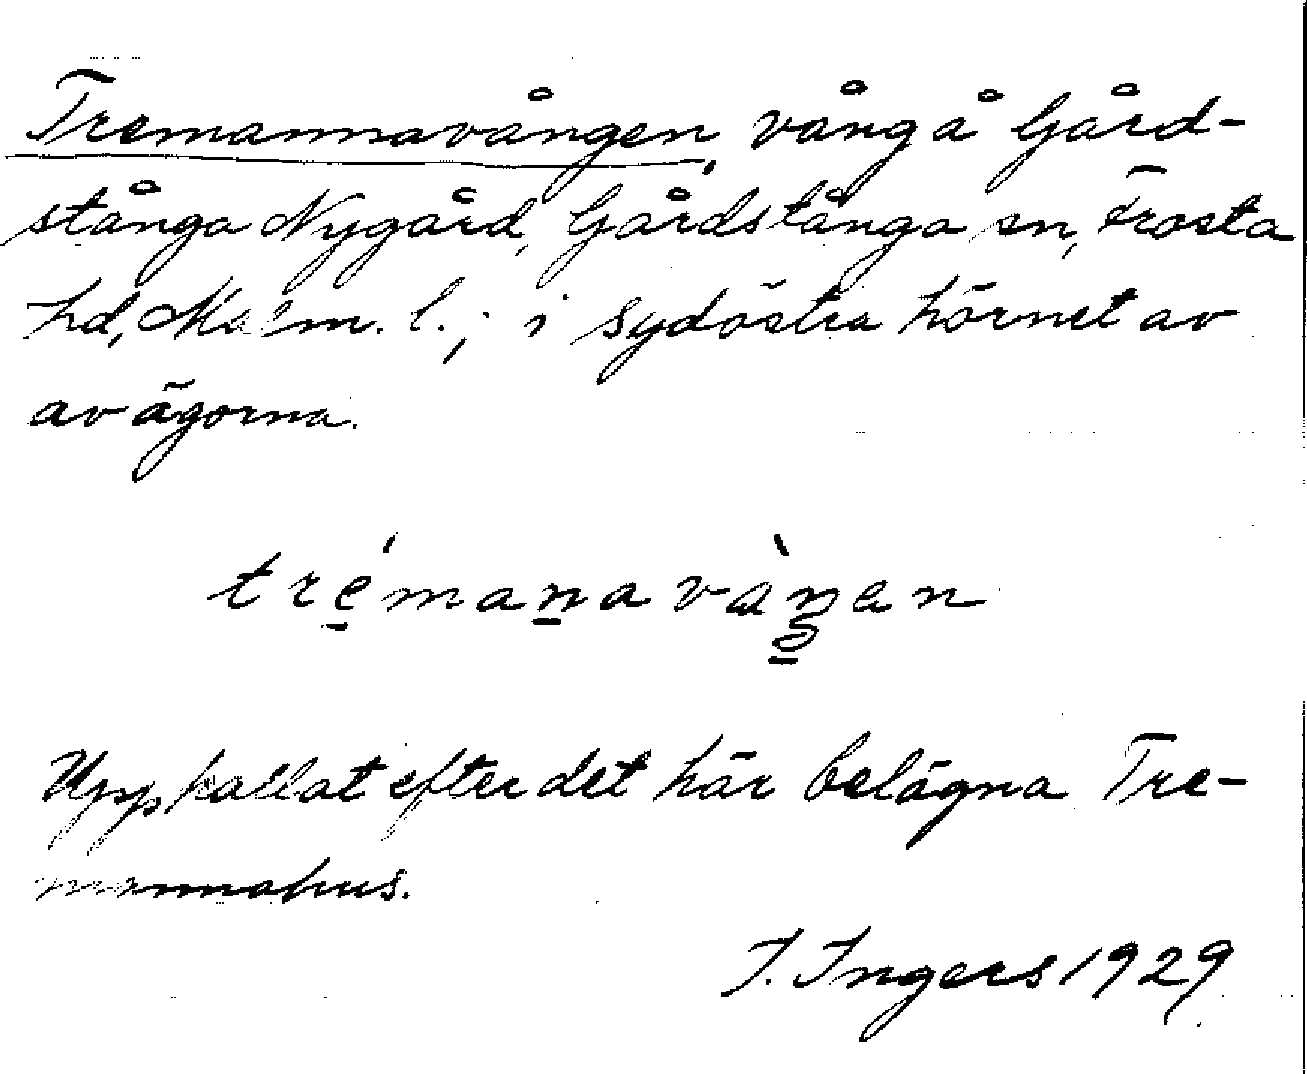 Tremannavången, vång å Gård-
stånga Nygård, Gårdstånga sn, Frosta
hd, Malm. l.; i sydöstra hörnet av
av ägorna.
trémanavàŋen
Uppkallat efter det här belägna Tre-
mannahus.
I. Ingers 1929